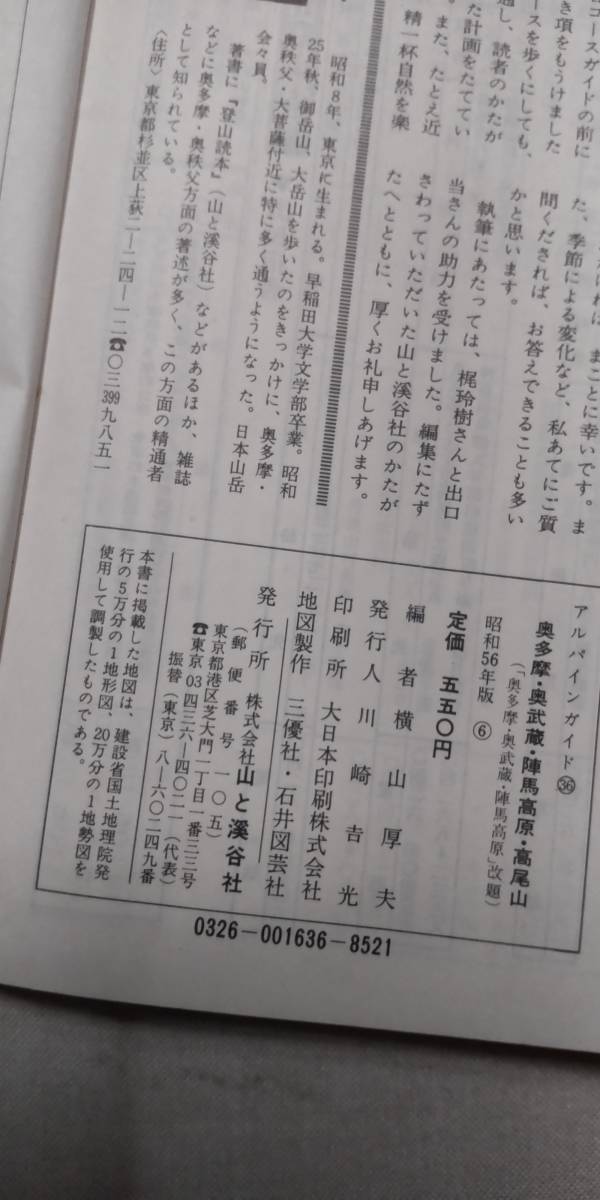 コースガイドの前に
き項をもうけました
ースを歩くにしても、
通し、読者のかたが
た計画をたててい
。また、たとえ近
精一杯自然を楽
まことに幸いです。ま
た、季節による変化など、私あてにご質
問くだされば、お答えできることも多い
かと思います。
執筆にあたっては、梶玲樹さんと出口
当さんの助力を受けました。編集にたず
さわっていただいた山と溪谷社のかたが
たへとともに、厚くお礼申しあげます。
昭和8年、東京に生まれる。早稲田大学文学部卒業。昭和
25年秋、御岳山、大岳山を歩いたのをきっかけに、奥多摩・
奥秩父・大菩薩付近に特に多く通うようになった。日本山岳
会々員。
著書に『登山読本』(山と溪谷社)などがあるほか、雑誌
などに奥多摩・奥秩父方面の著述が多く、この方面の精通者
として知られている。
〈住所〉東京都杉並区上荻二―二四―一二☎〇三399九八五一
アルパインガイド㊱
奥多摩・奥武蔵・陣馬高原・高尾山
(「奥多摩・奥武蔵・陣馬高原」改題)
昭和56年版 ⑥
定価 五五〇円
編者 横山厚夫
発行人 川崎吉光
印刷所 大日本印刷株式会社
地図製作 三優社・石井図芸社
発行所 株式会社 山と溪谷社
(郵便番号 一〇五)
東京都港区芝大門一丁目一番三三号
☎東京03四三六―四〇二一(代表)
振替(東京)八―六〇二四九番
本書に掲載した地図は、建設省国土地理院発
行の5万分の1地形図、20万分の1地勢図を
使用して調製したものである。
0326-001636-8521